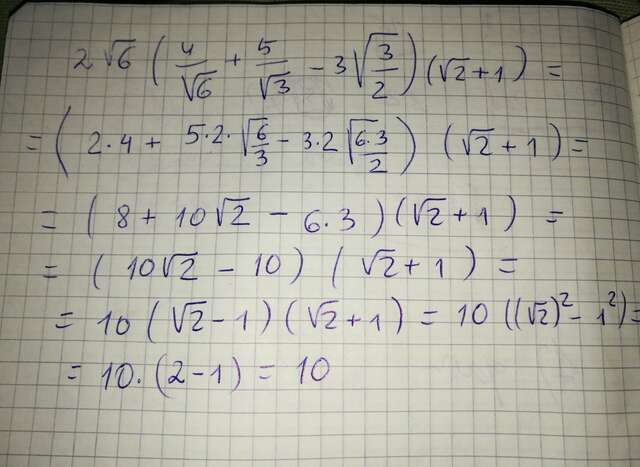 2√6 (4/√6 + 5/√3 − 3√(3/2)) (√2+1) =
= (2·4 + 5·2·√(6/3) − 3·2√(6·3/2)) (√2+1) =
= (8 + 10√2 − 6·3)(√2+1) =
= (10√2 − 10) (√2+1) =
= 10(√2−1)(√2+1) = 10((√2)²−1²)=
= 10·(2−1) = 10